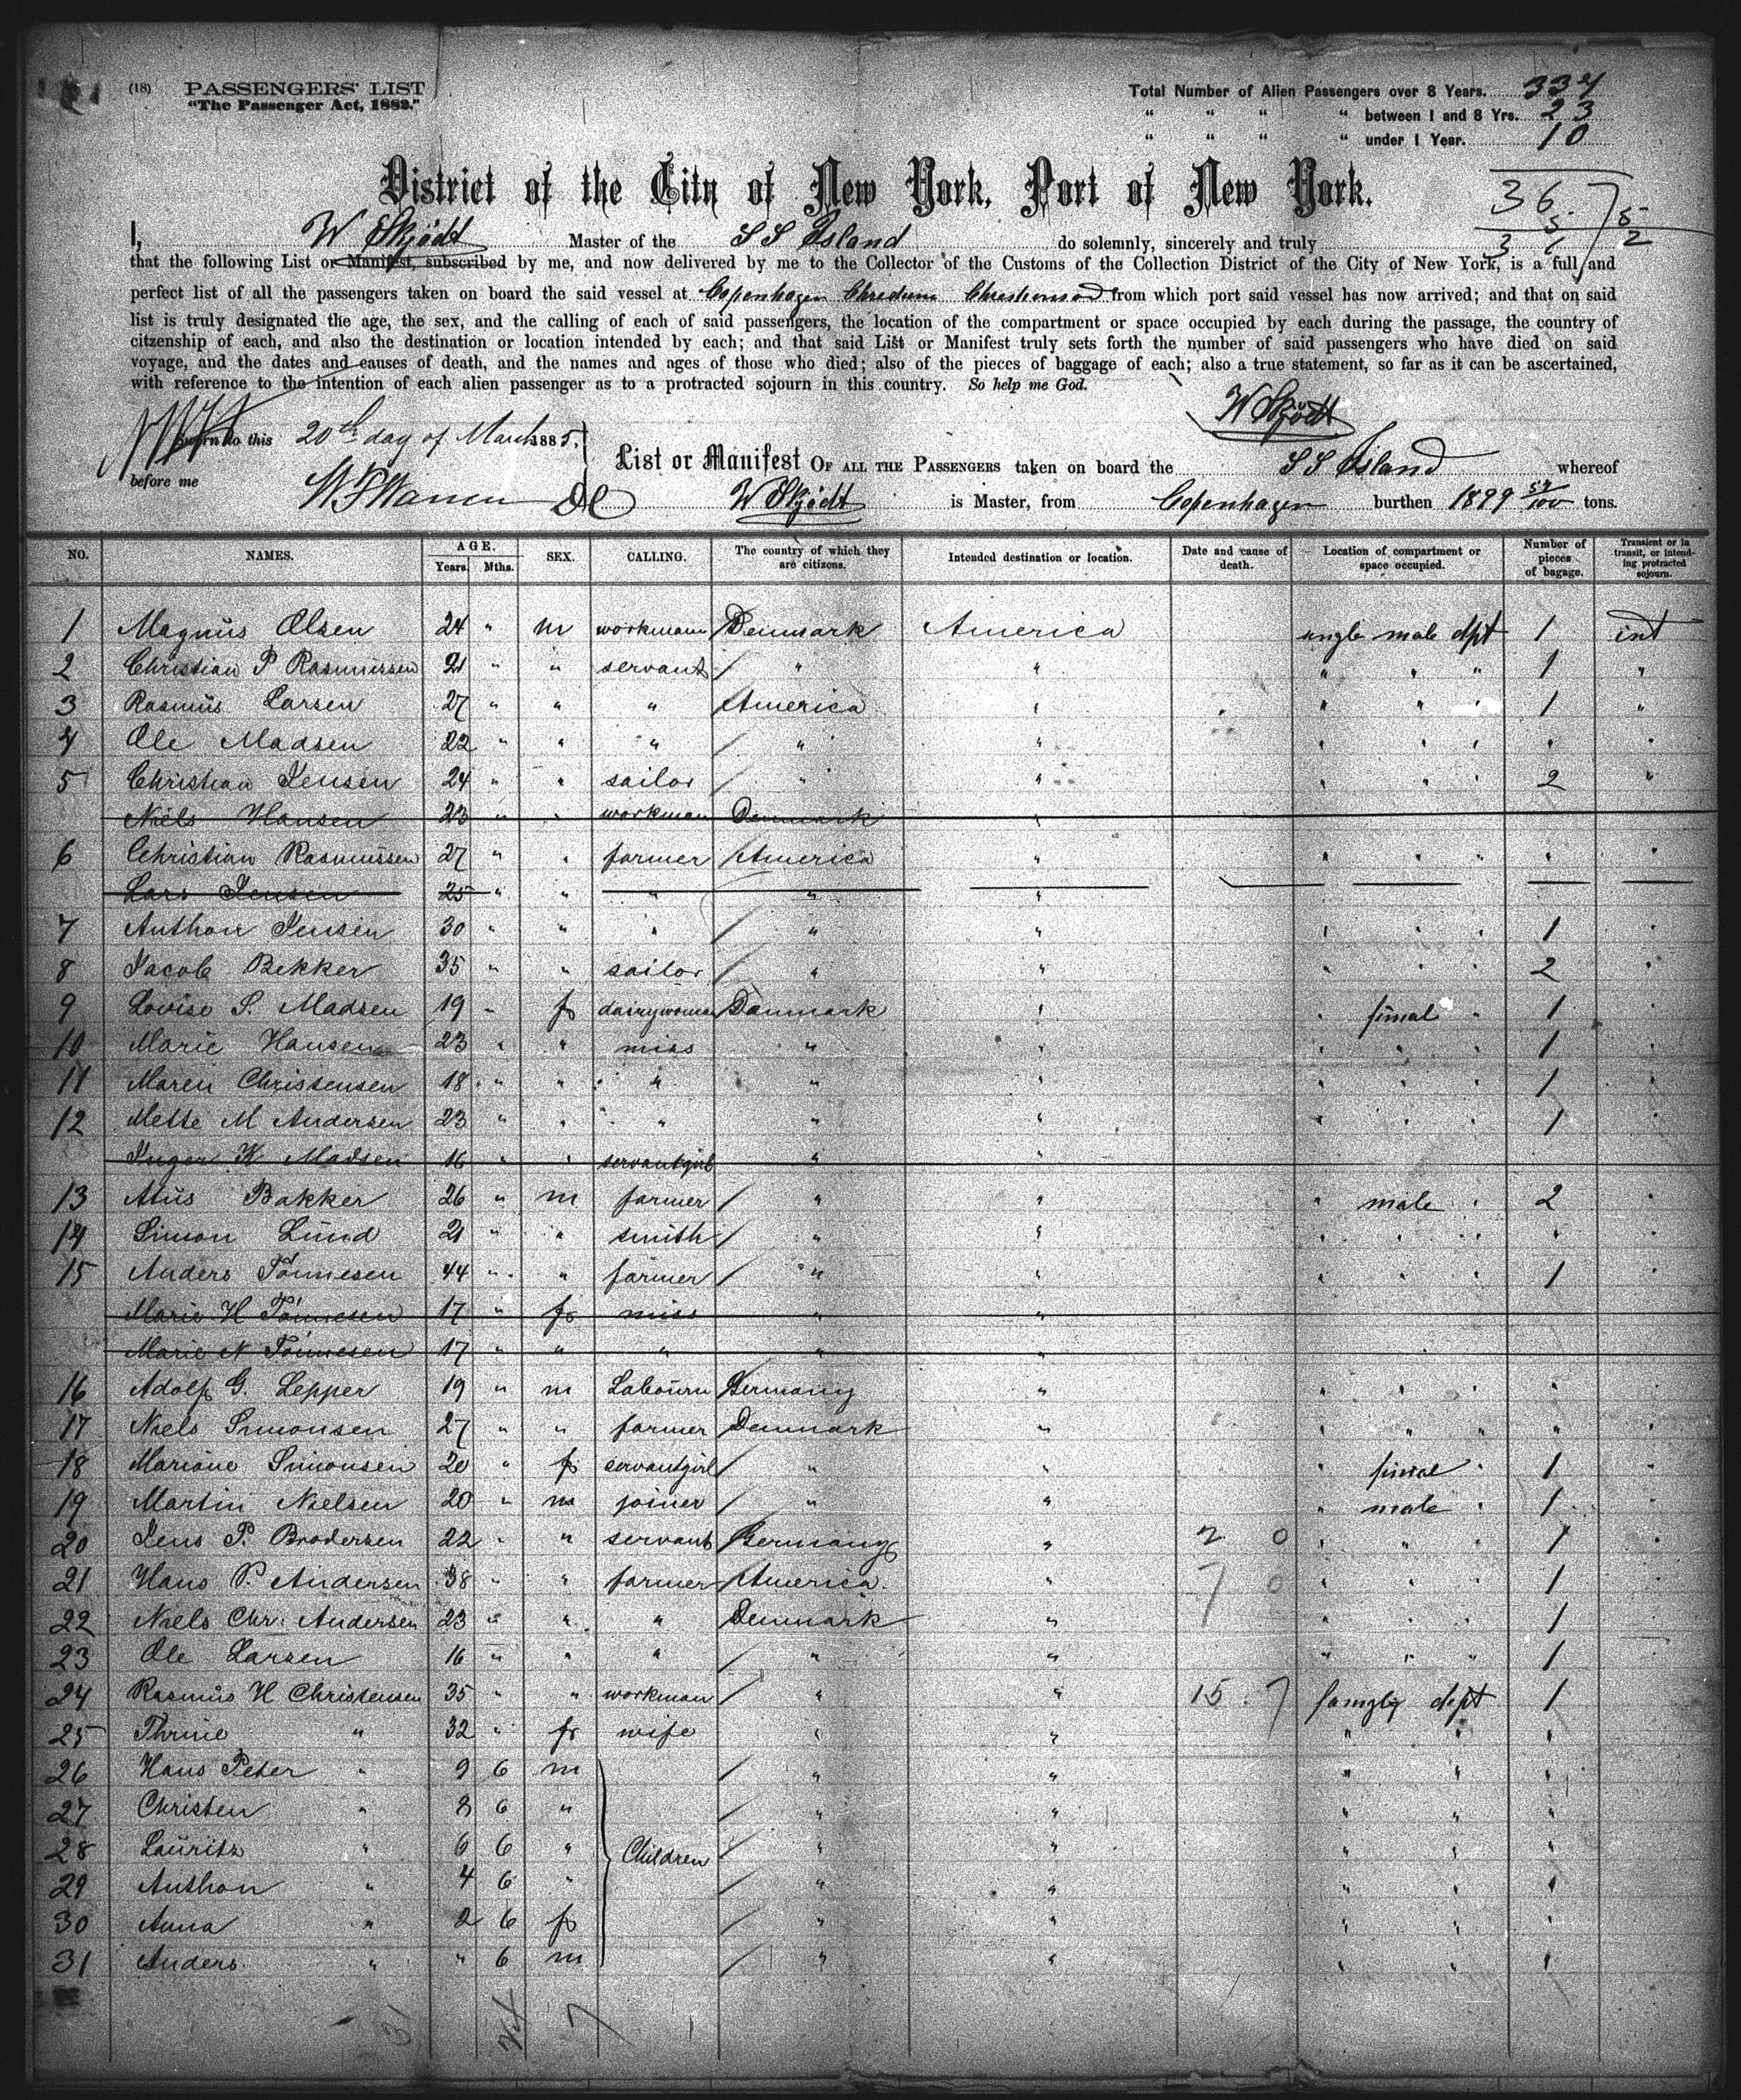 (18) PASSENGERS' LIST
"The Passenger Act, 1882."
Total Number of Alien Passengers over 8 Years. 334
" " " " between 1 and 8 Yrs. 23
" " " " under 1 Year. 10
District of the City of New York, Port of New York.
I, W Skjödt Master of the S S Island do solemnly, sincerely and truly
that the following List or Manifest, subscribed by me, and now delivered by me to the Collector of the Customs of the Collection District of the City of New York, is a full and
perfect list of all the passengers taken on board the said vessel at Copenhagen from which port said vessel has now arrived; and that on said
list is truly designated the age, the sex, and the calling of each of said passengers, the location of the compartment or space occupied by each during the passage, the country of
citzenship of each, and also the destination or location intended by each; and that said List or Manifest truly sets forth the number of said passengers who have died on said
voyage, and the dates and causes of death, and the names and ages of those who died; also of the pieces of baggage of each; also a true statement, so far as it can be ascertained,
with reference to the intention of each alien passenger as to a protracted sojourn in this country. So help me God.
W Skjödt
Sworn to this 20th day of March 1885.
before me
List or Manifest OF ALL THE PASSENGERS taken on board the S S Island whereof
W Skjödt is Master, from Copenhagen burthen 1899 57/100 tons.
NO. NAMES. AGE. Years. Mths. SEX. CALLING. The country of which they are citizens. Intended destination or location. Date and cause of death. Location of compartment or space occupied. Number of pieces of bagage. Transient or in transit, or intending protracted sojourn.
1 Magnus Olsen 24 " m workmann Denmark America single male dpt 1 int
2 Christian P Rasmussen 21 " " servant " " " " " 1 "
3 Rasmus Larsen 27 " " " America " " " " 1 "
4 Ole Madsen 22 " " " " " " " " " "
5 Christian Jensen 24 " " sailor " " " " " 2 "
Niels Hansen 23 " " workman Denmark "
6 Christian Rasmussen 27 " " farmer America " " " " " "
Lars Jensen 25 " " " " "
7 Anthon Jensen 30 " " " " " " " " 1 "
8 Jacob Bekker 35 " " sailor " " " " " 2 "
9 Lovise S. Madsen 19 " f dairywoman Danmark " " fimal " 1 "
10 Marie Hansen 23 " " miss " " " " " 1 "
11 Maren Christensen 18 " " " " " " " " 1 "
12 Mette M Andersen 23 " " " " " " " " 1 "
Inger K Madsen 16 " " servantgirl " "
13 Atüs Bakker 26 " m farmer " " " male " 2 "
14 Simon Lund 21 " " smith " " " " " " "
15 Anders Tönnesen 44 " " farmer " " " " " 1 "
Marie H Tönnesen 17 " f miss " "
Marie N Tönnesen 17 " " " " "
16 Adolf G. Lepper 19 " m Labourn Germany " " " " " "
17 Niels Simonsen 27 " " farmer Denmark " " " " " "
18 Mariane Simonsen 20 " f servantgirl " " " fimal " 1 "
19 Martin Nielsen 20 " m joiner " " " male " 1 "
20 Jens P. Brodersen 22 " " servant Germany " " " " 1 "
21 Hans P. Andersen 38 " " farmer America " " " " 1 "
22 Niels Chr. Andersen 23 " " " Denmark " " " " 1 "
23 Ole Larsen 16 " " " " " " " " 1 "
24 Rasmus H Christensen 35 " " workman " " 15 7 famyly dept 1
25 Thrine " 32 " f wife " " " " "
26 Hans Peter " 9 6 m " " " " "
27 Christen " 8 6 " " " " " "
28 Lauritz " 6 6 " Children " " " " "
29 Anthon " 4 6 " " " " " "
30 Anna " 2 6 f " " " " "
31 Anders " " 6 m " " " " "
31